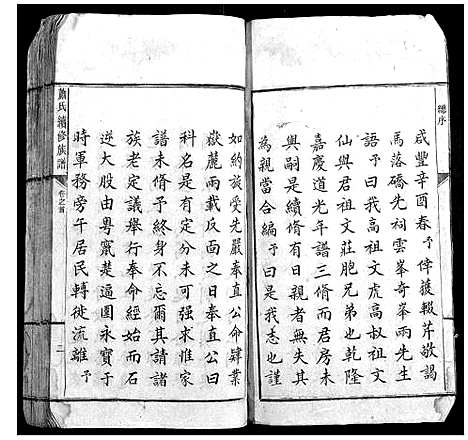 總序
咸豐辛酉春予倖獲輟芹敬謁
馬落礄先祠雲峯奇峯兩先生
語予曰我高祖文虎高叔祖文
仙與君祖文莊胞兄弟也乾隆
嘉慶道光年譜三脩而君房未
與嗣是續脩有日親者無失其
為親當合編予曰是我志也謹
如約旋受先嚴奉直公命肄業
嶽麓兩載反面之日奉直公曰
科名是有定分未可强求惟家
譜未脩予終身不忘爾其請諸
族老定議舉行奉命經始而石
逆大股由粵竄楚逼圍永寶于
時軍務旁午居民轉徙流離予
蕭氏續修族譜
卷之首
二